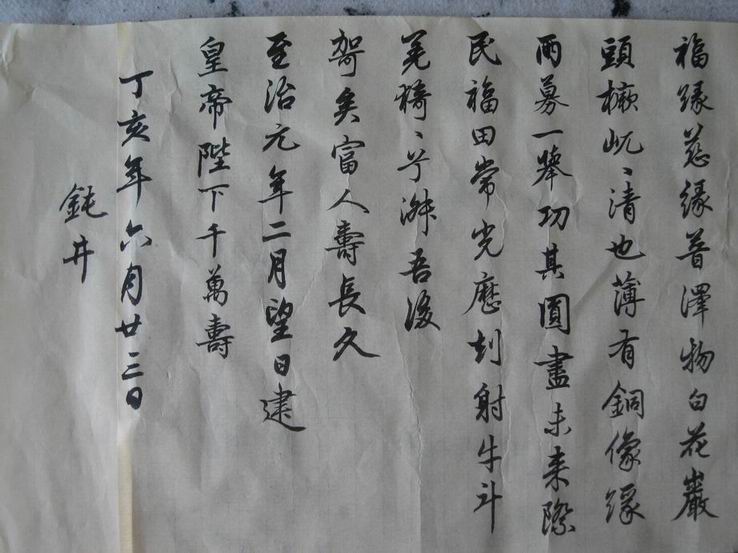 福緣慈緣普澤物白花巖
頭樾屼〻清也薄有銅像緣
両募一舉功其圓盡未来際
民福田常光歷刻射牛斗
羌猗〻兮淋吾後
哿矣富人壽長久
至治元年二月望日建
皇帝陛下千萬壽
丁亥年六月廿三日
鈍井